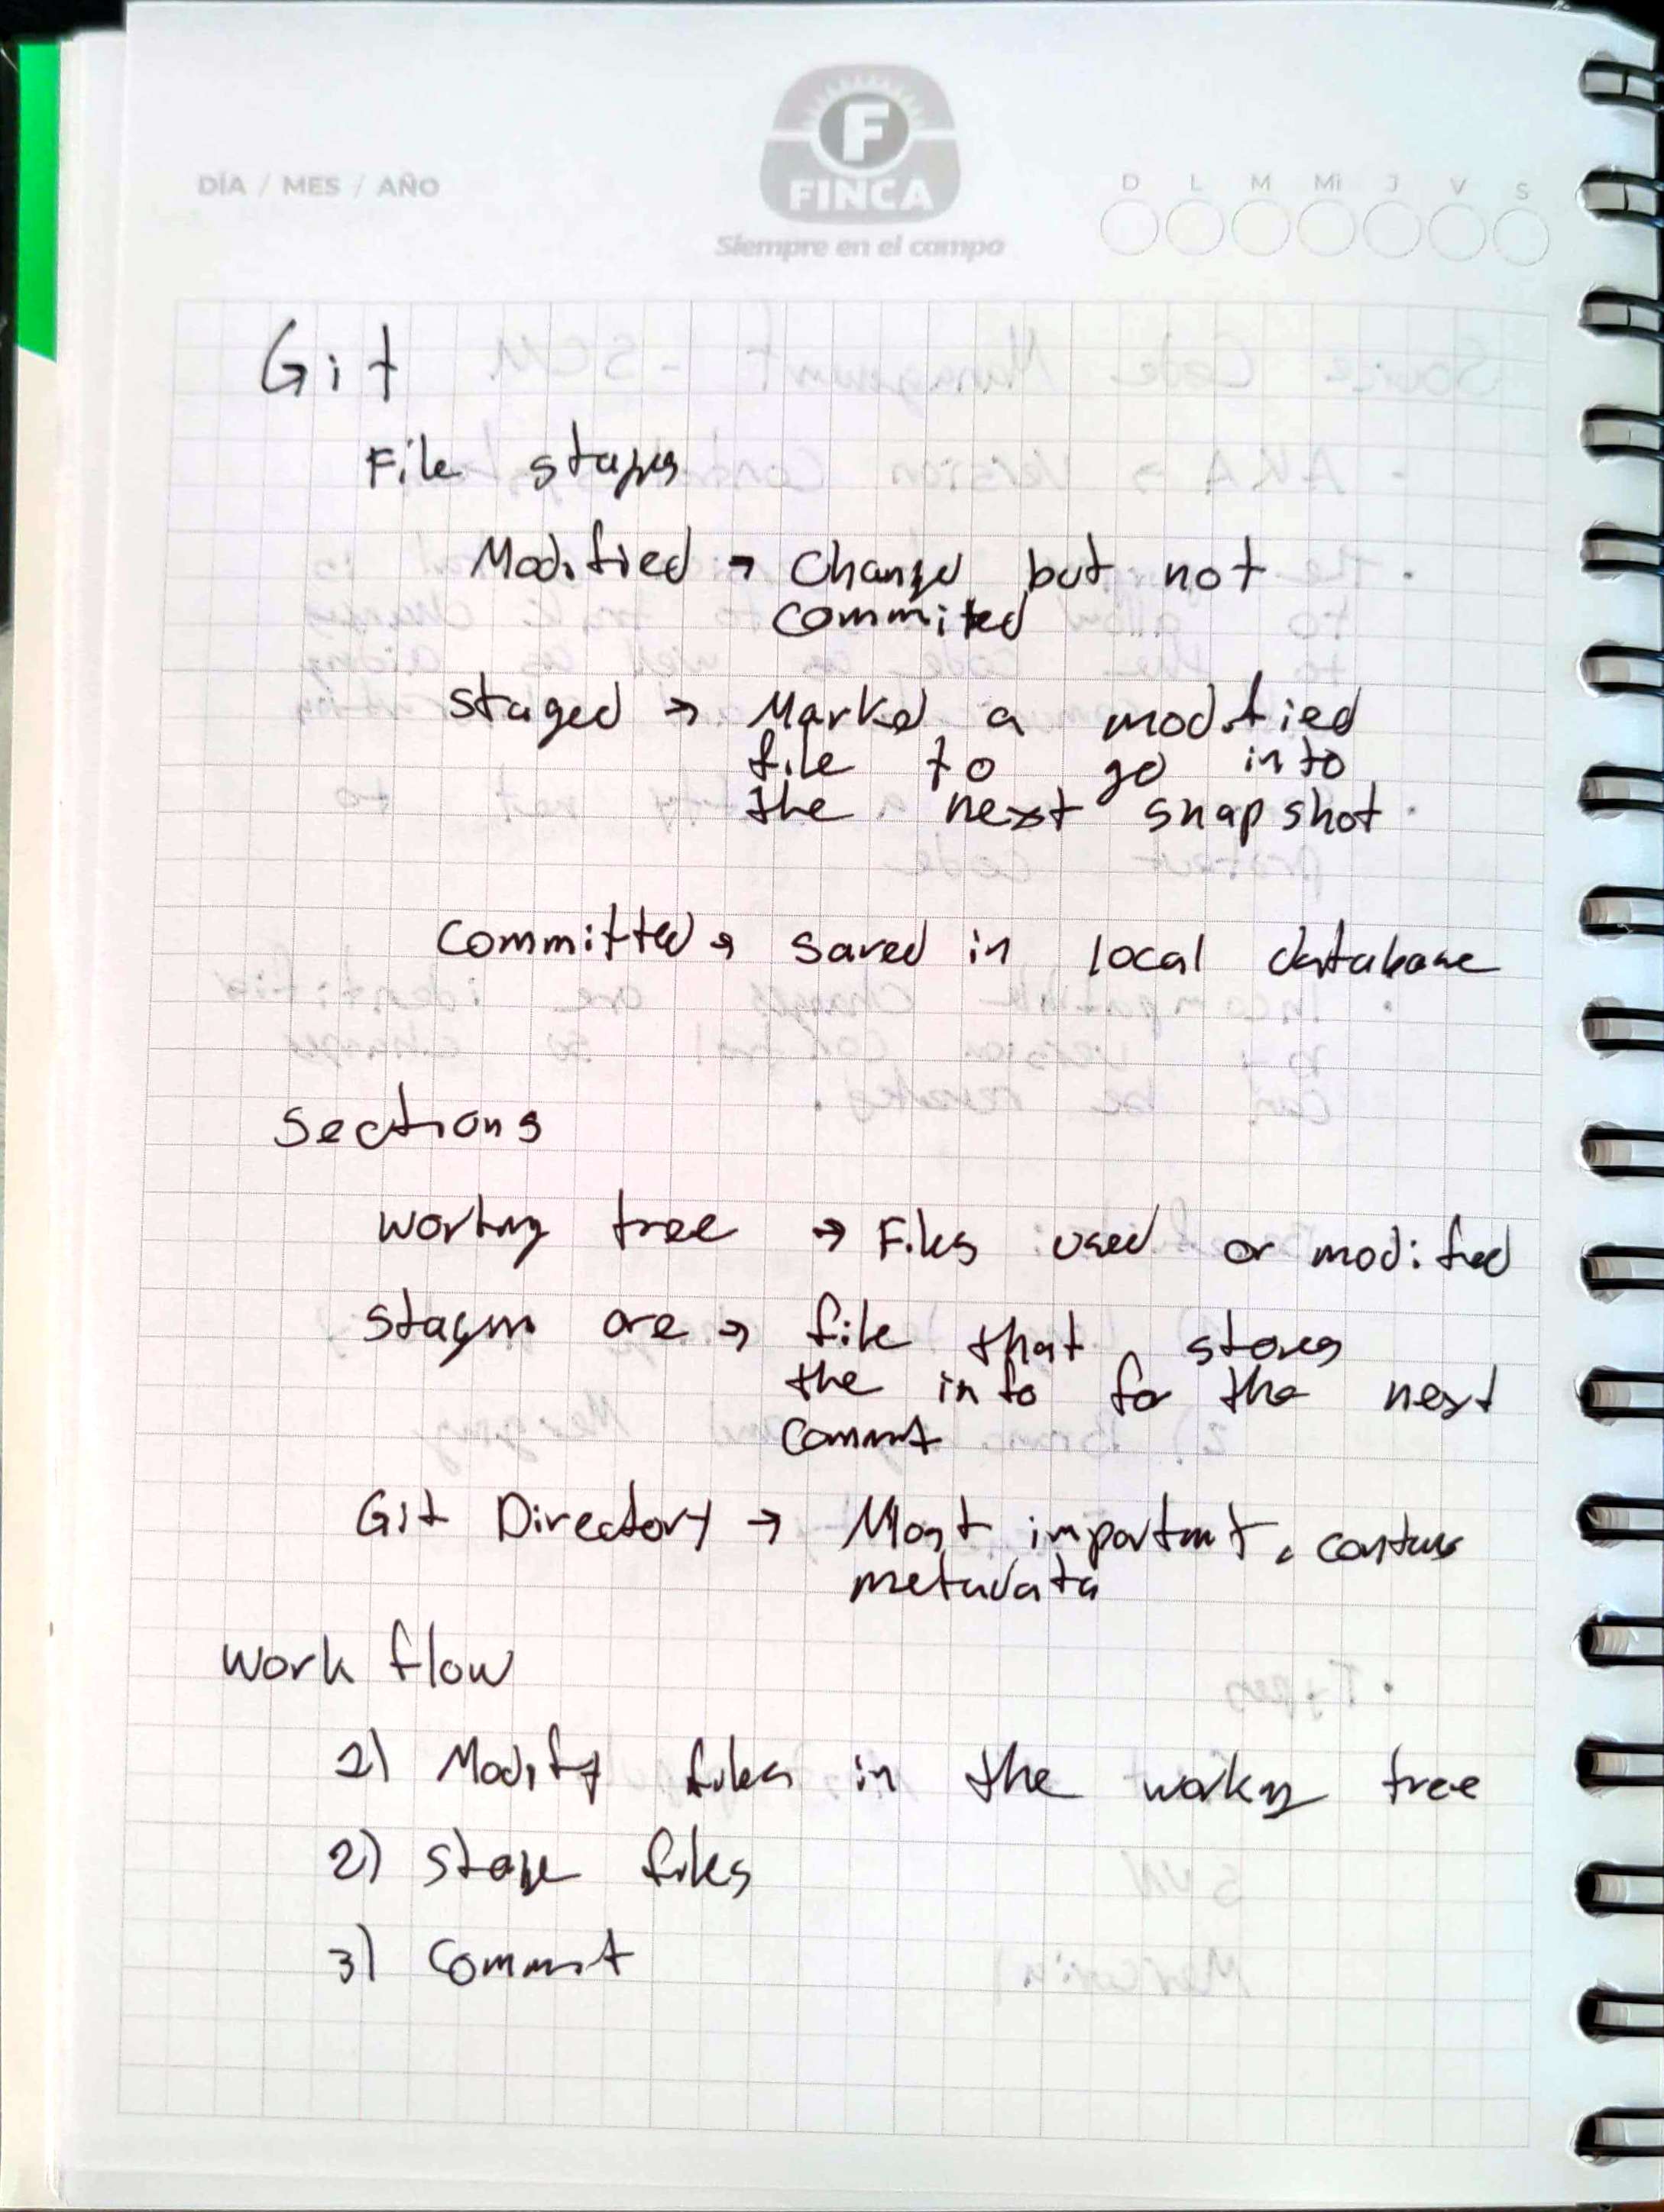 DÍA / MES / AÑO
F
FINCA
Siempre en el campo
D L M Mi J V S
Git
File stages
Modified → Change but not
commited
staged → Marked a modified
file to go into
the next snapshot
committed → saved in local database
sections
working tree → Files used or modified
staging are → file that stores
the info for the next
commit
Git Directory → Most important, contains
metadata
work flow
1) Modify files in the working tree
2) stage files
3) commit